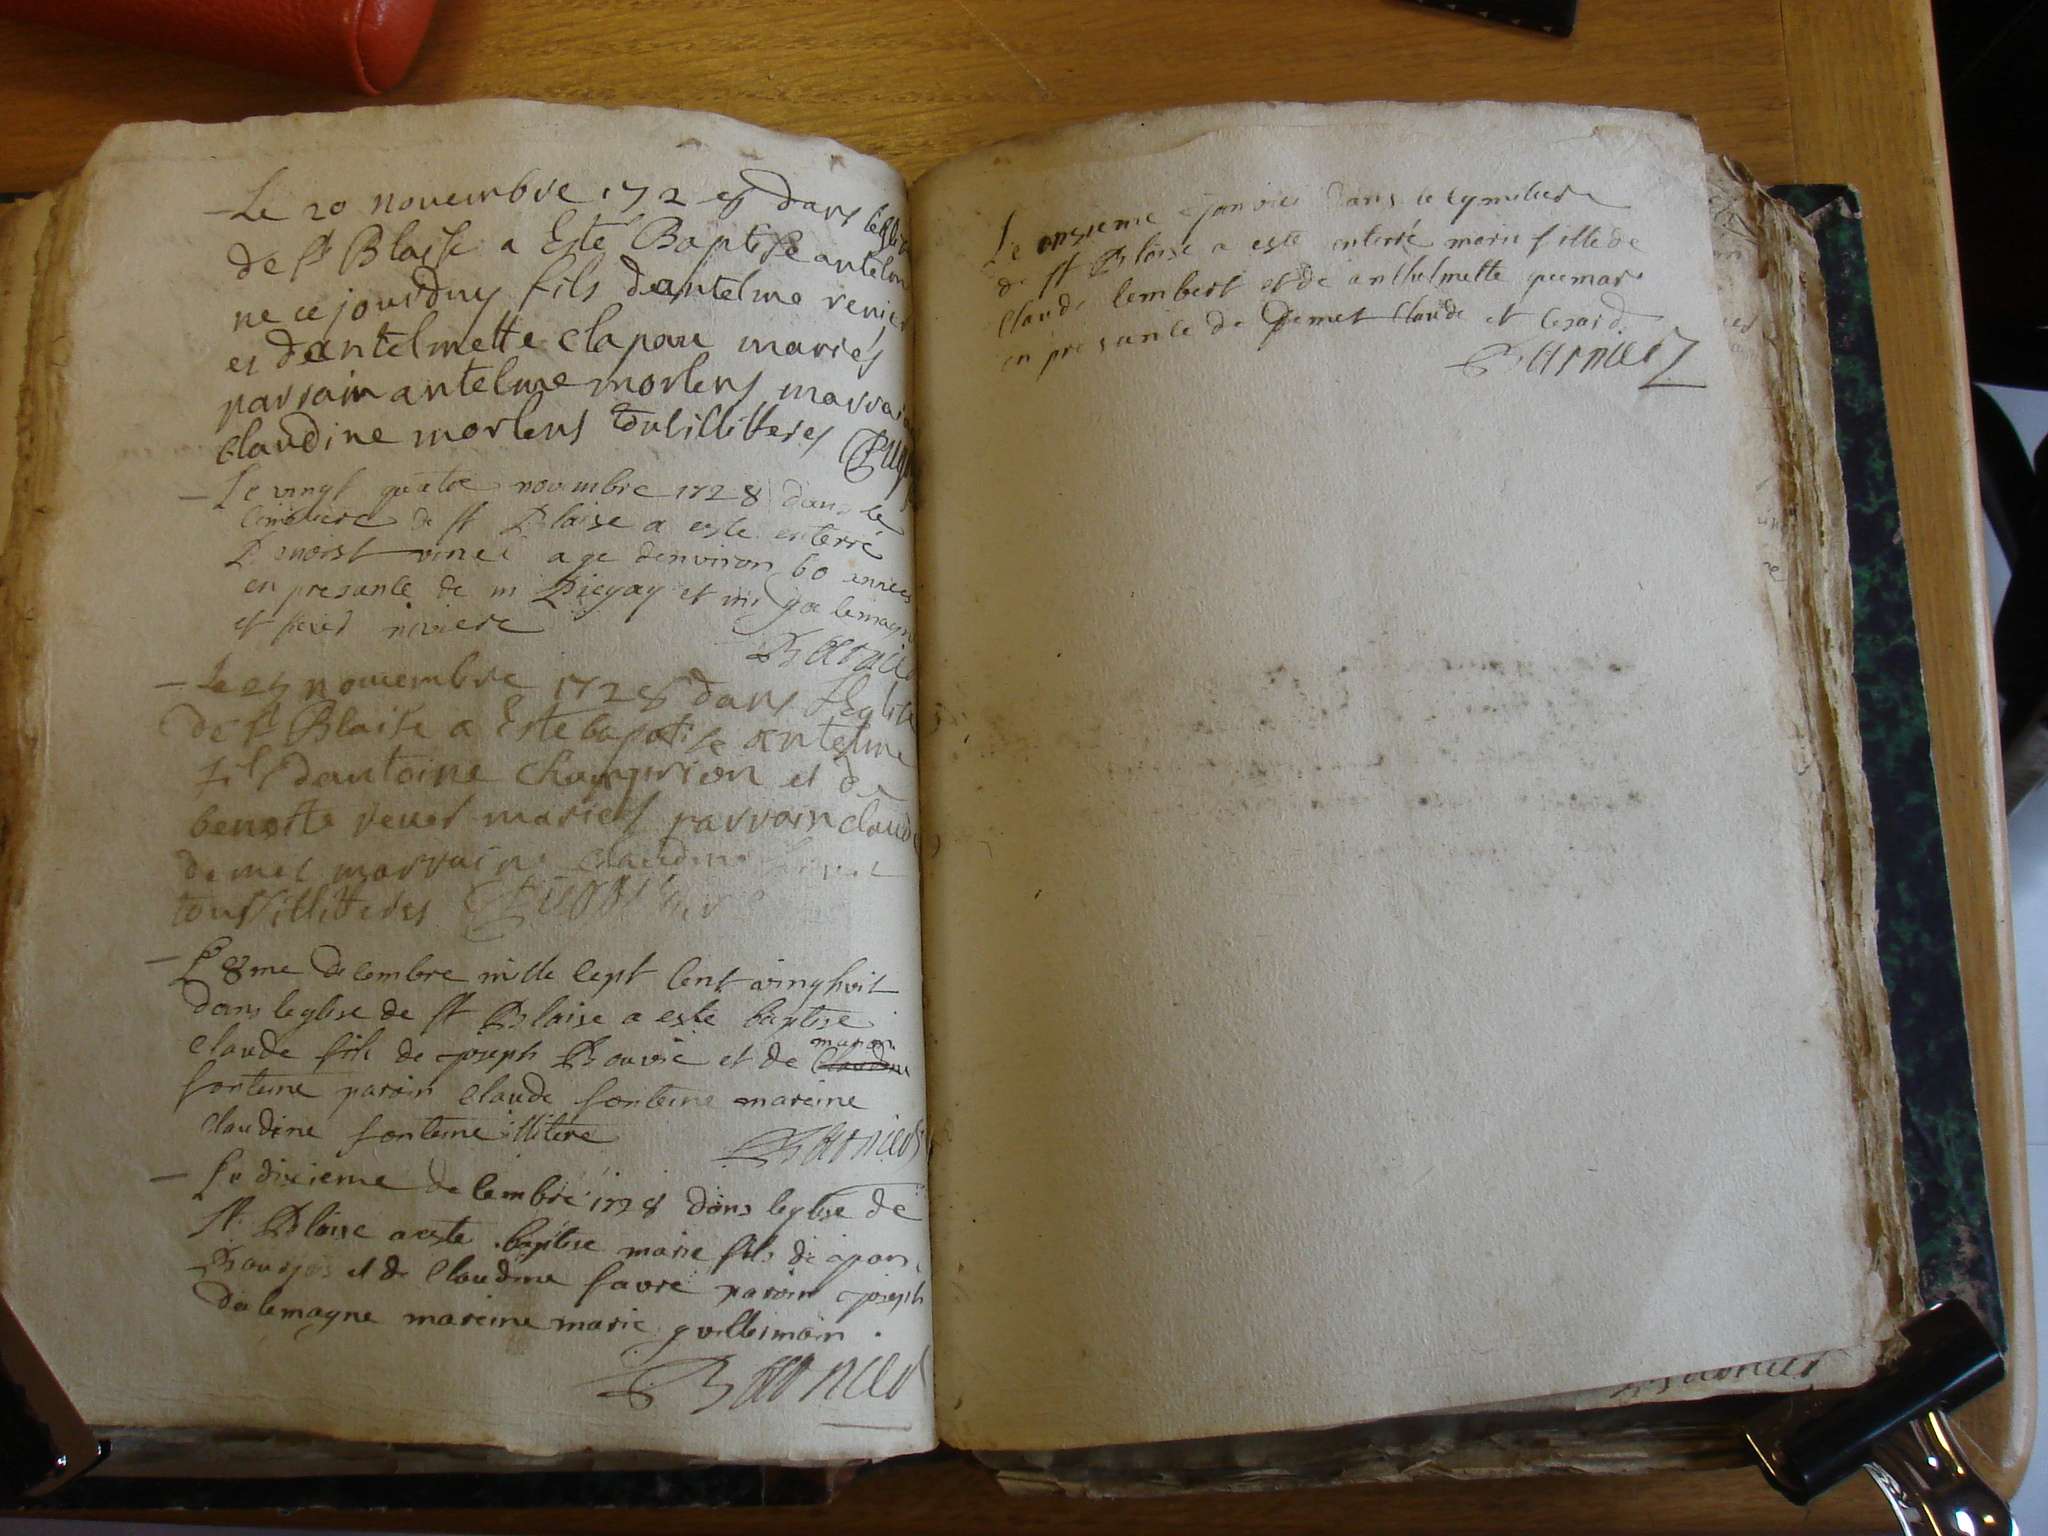 Le 20 novembre 1728 dans leglise
de st Blaise a Este Baptise antelme
ne ce jourduy fils dantelme renier
et dantelmette clapau mariés
parrain antelme morlens marraine
claudine morlens tous illitteres
Le vingt quatre novembre 1728 dans le
cimitiere de st Blaise a este enterré
Benoist age denviron 60 années
en presance de m et m
et riviere
Barnier
Le novembre 1728 dans LEglise
de st Blaise a Este baptise antelme
fils dantoine champion et de
benoite mariés parrain claude
demet marraine claudine
tous illitteres
Le 8me decembre mille sept cent vinghuit
dans leglise de st Blaise a este baptise
claude fils de joseph Bouvié et de manon
claudine
fonteine parain claude fonteine mareine
claudine fonteine illitere
Barnier
Le dixieme decembre 1728 dans leglise de
st Blaise a este baptise marie fils de
Bourjois et de claudine favre parain joseph
dalemagne mareine marie guillermain.
Barnier
Le onzieme janvier dans le cymitiere
de st Blaise a este enterré marie fille de
claude lembert et de anthelmette guemar
en presance de demet claude et
Barnier
Barnier